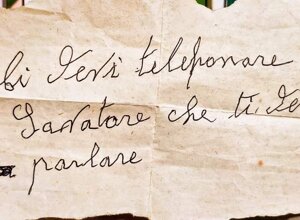 devi telefonare
Salvatore che ti de
parlare